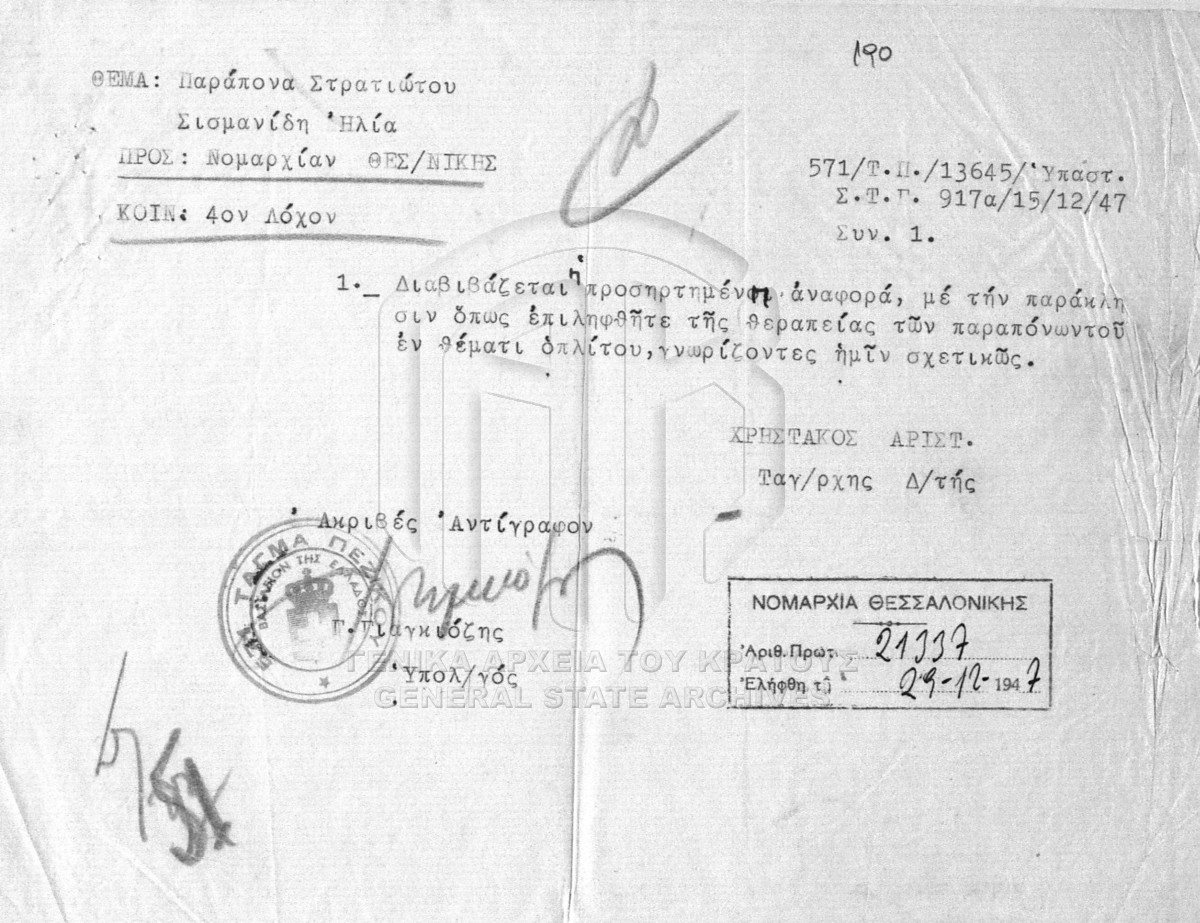 190
ΘΕΜΑ: Παράπονα Στρατιώτου
Σισμανίδη Ἠλία
ΠΡΟΣ: Νομαρχίαν ΘΕΣ/ΝΙΚΗΣ
ΚΟΙΝ: 4ον Λόχον
571/Τ.Π./13645/Ὑπαστ.
Σ.Τ.Γ. 917α/15/12/47
Συν. 1.
1._ Διαβιβάζεται ἡ προσηρτημένη ἀναφορά, μέ τήν παράκλη
σιν ὅπως ἐπιληφθῆτε τῆς θεραπείας τῶν παραπόνωντοῦ
ἐν θέματι ὁπλίτου,γνωρίζοντες ἡμῖν σχετικῶς.
ΧΡΗΣΤΑΚΟΣ ΑΡΙΣΤ.
Ταγ/ρχης Δ/τής
Ἀκριβές Ἀντίγραφον
571 ΤΑΓΜΑ ΠΕΖΙΚΟΥ
ΒΑΣΙΛΕΙΟΝ ΤΗΣ ΕΛΛΑΔΟΣ
Γ.Γιαγκιόζης
Ὑπολ/γός
ΝΟΜΑΡΧΙΑ ΘΕΣΣΑΛΟΝΙΚΗΣ
Ἀριθ. Πρωτ. 21337
Ἐλήφθη τῇ 29-12-1947
ΓΕΝΙΚΑ ΑΡΧΕΙΑ ΤΟΥ ΚΡΑΤΟΥΣ
GENERAL STATE ARCHIVES